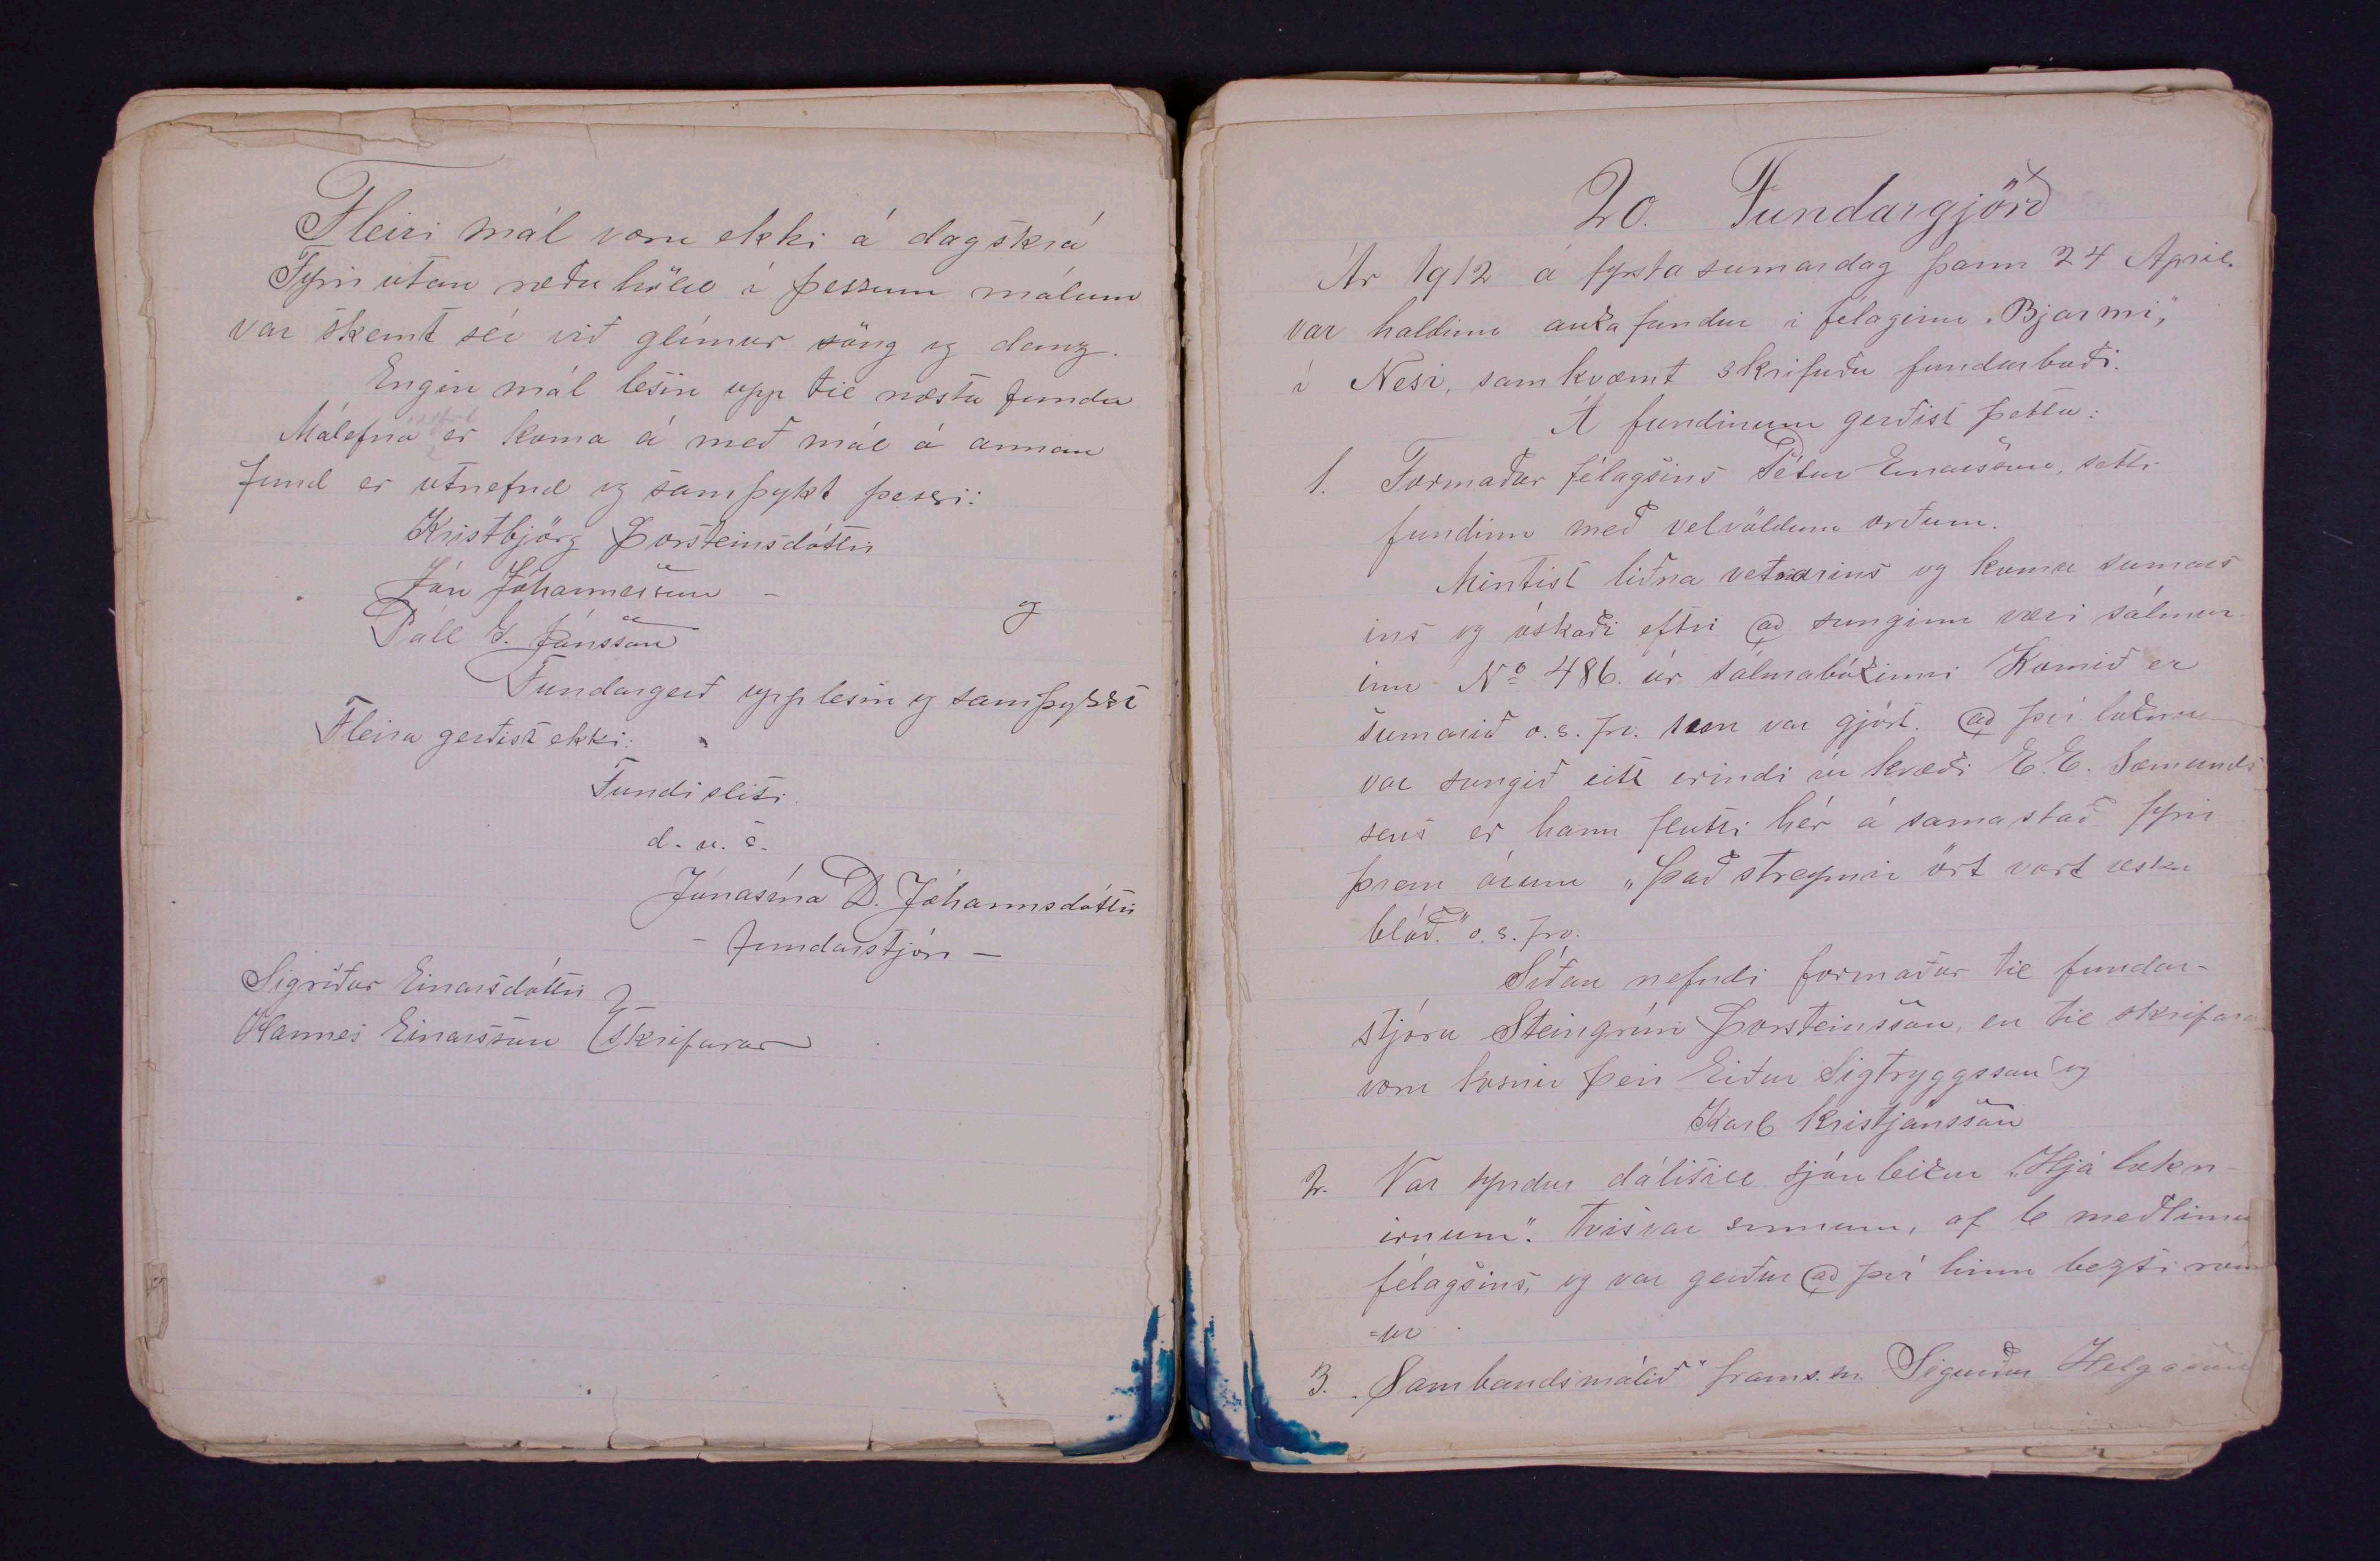 Fleiri mál voru ekki á dagskrá
Fyrir utan ræðu höld í þessum málum
var skemt sér við glímur söng og danz.
Engin mál lesin upp til næsta funda
Málefna nefnd er koma á með mál á annan
fund er útnefnd og samþykt þessi:
Kristbjörg Þorsteinsdóttir
Jón Jóhannesson – og
Páll G. Jónsson
Fundargerð upplesin og samþykkt
Fleira gerðist ekki:
Fundi slitið.
d. u. s.
Jónasína D. Jóhannsdóttir
– fundarstjóri –
Sigríður Einarsdóttir
Hannes Einarsson skrifarar
20. Fundargjörð
Ár 1912 á fyrsta sumardag þann 24 April.
var haldinn aukafundur i félaginu „Bjarmi,"
í Nesi, samkvæmt skrifuðu fundarboði.
Á fundinum gerðist þetta:
1. Formaður félagsins Pétur Einarsson, setti
fundinn með velvöldum orðum.
Mintist liðna vetrarins og komu sumars
ins og óskaði eftir að sunginn væri sálmur-
inn No 486. úr sálmabókinni Komið er
sumarið o. s. frv. sem var gjört. að því loknu
var sungið eitt erindi úr kvæði E. E. Sæmunds
sens er hann flutti hér á sama stað fyrir
þrem árum „Það streymir ört vort æsku
blóð." o. s. frv.
Síðan nefndi formaður til fundar-
stjóra Steingrím Þorsteinsson, en til skrifara
voru kosnir þeir Eiður Sigtryggsson og
Karl Kristjánsson
2. Var syndur dálitill sjónleikur „Hjá lækn-
irnum". tvisvar sinnum, af 6 meðlimum
félagsins, og var gerður að því hinn bezti róm
=ur
3. „Sambandsmálið" frams.m. Sigurður Helgason